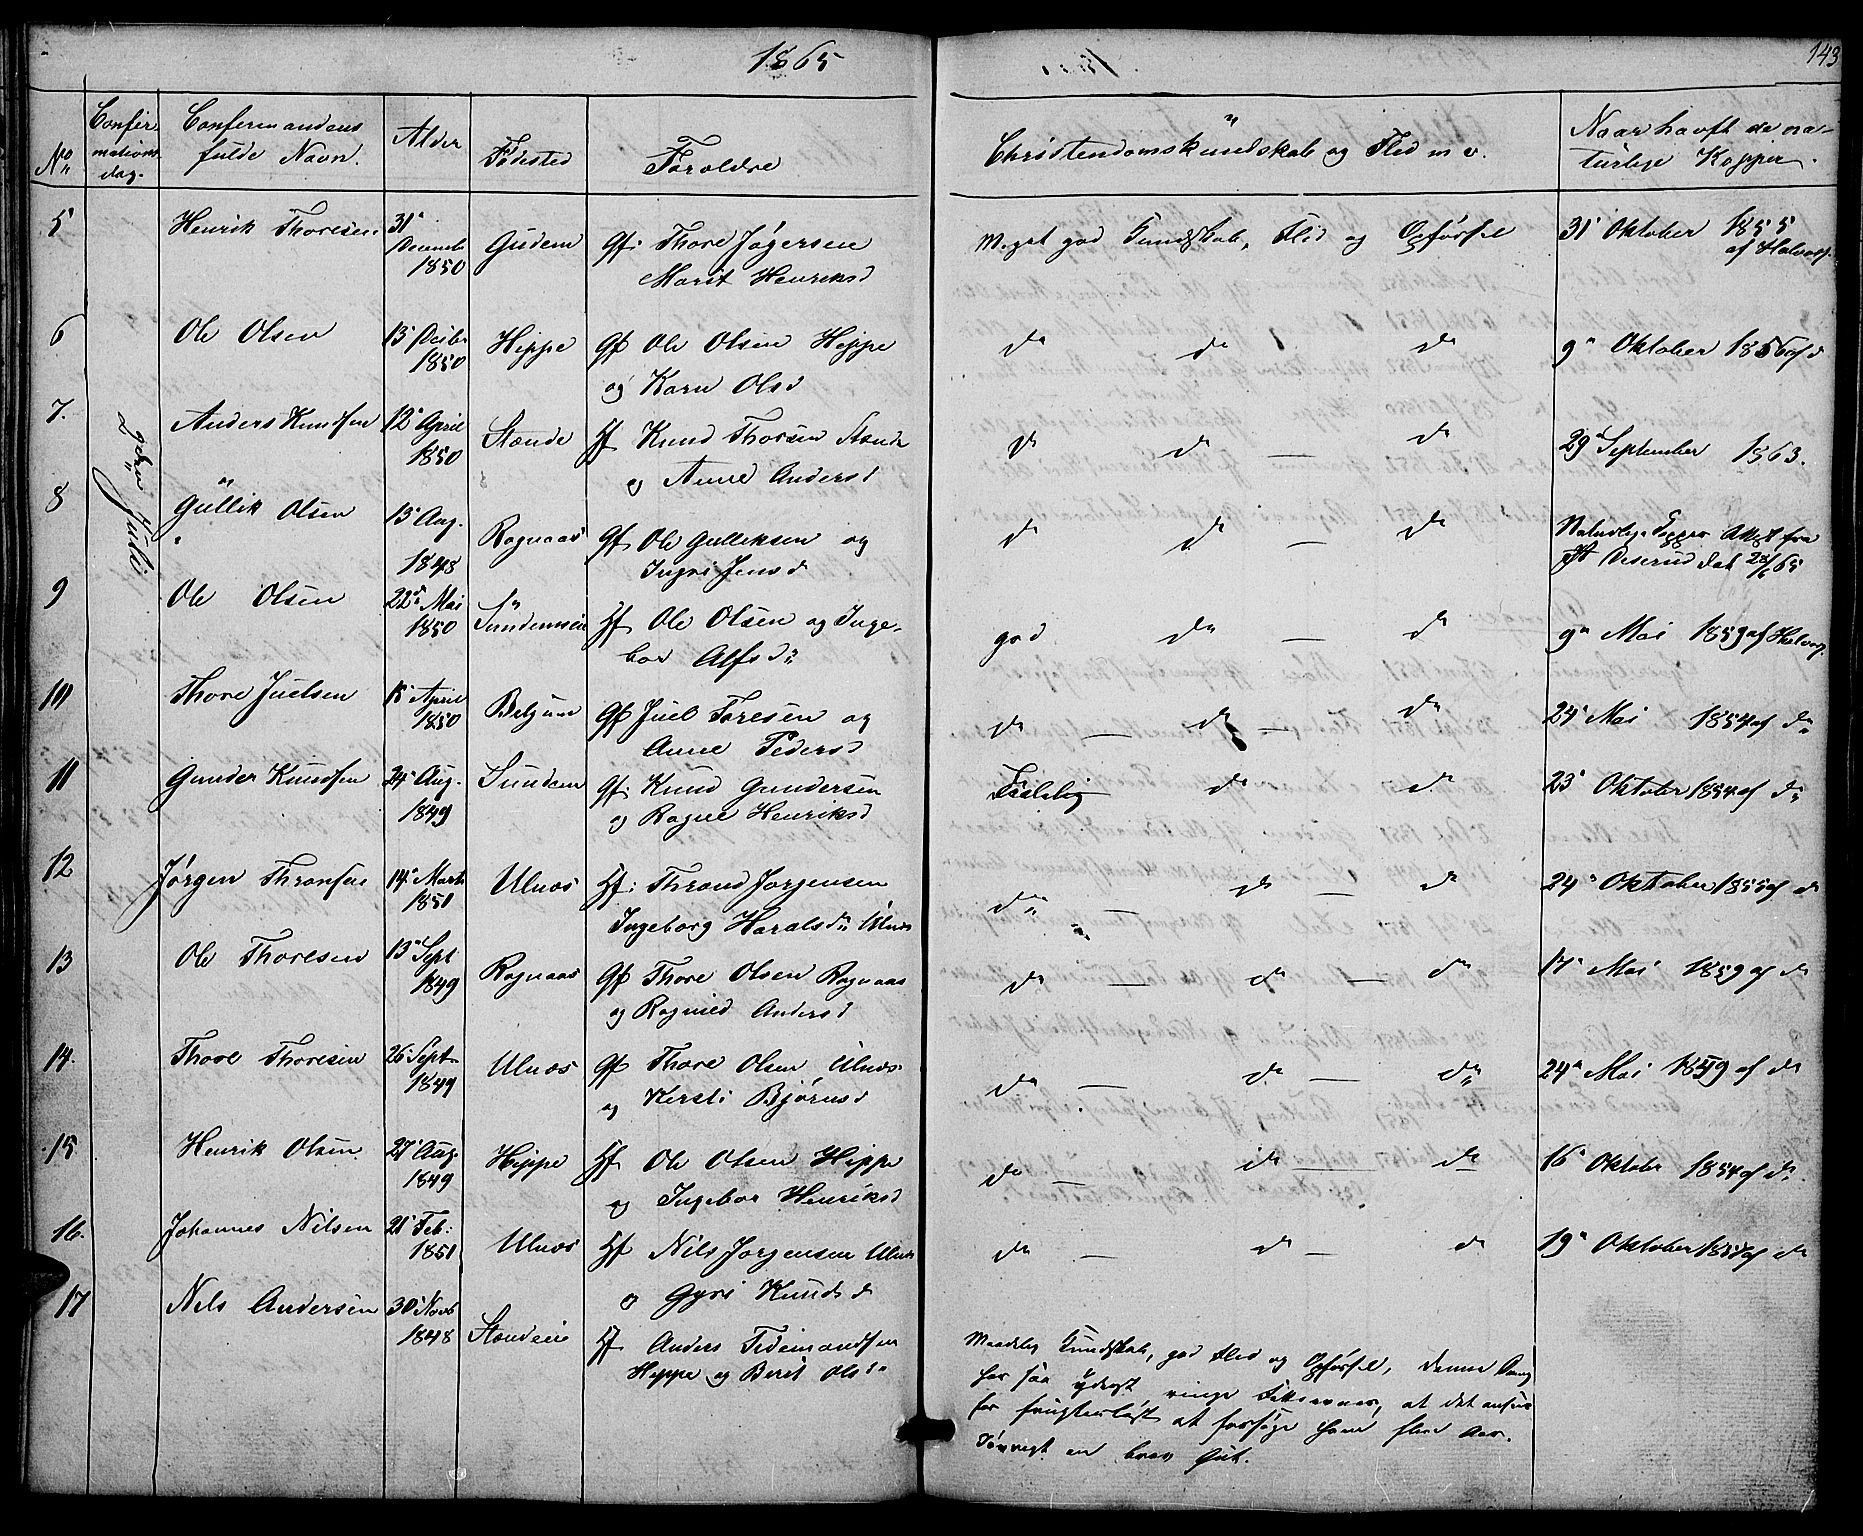 1865
143
No
Confirmations dag.
Confirmandens fulde Navn.
Alder
Fødested
Forældre
Christendomskundskab og Flid m v.
Naar havft de naturlige Kopper.
9de Juli
5 Henrik Thoresen. 31' Decemb 1850 Gudem Gf: Thore Jøgersen Marit Henriksd Meget god Kundskab, Flid og Opførsel 31' Oktober 1855 af Halvors.
6 Ole Olsen 13' Decbr 1850 Hippe Gf Ole Olsen Hippe og Karn Olsd do do do 9' Oktober 1856 af d
7. Anders Knudsen 12' April 1850 Stende Hf Knud Thorsen og Anne Andersd do do — do 29' September 1863.
8 Gullik Olsen 13' Aug. 1848 Ragnaas Gf Ole Gulliksen og Ingri Jensd do do — do Naturlige Kopper Attest fra Dat 28/6 65
9 Ole Olsen 22d Mai 1850 Hf Ole Olsen og Ingebor Alfsd. god do — do 9' Mai 1859 af Halvors.
10 Thore Juelsen 18' April 1850 Beljum Gf Juel Toresen og Anne Pedersd do — do — do 24' Mai 1854 af do
11 Gunder Knudsen 24' Aug. 1849 Sundem Gf: Knud Gundersen og Ragne Henriksd Taalelig do do 23' Oktober 1854 af do
12 Jørgen Thronsen 14' Marts 1851 Ulnæs Hf: Thrond Jørgensen Ingeborg Haralsd. Ulnæs do — do — do 24' Oktober 1855 af do
13 Ole Thoresen 13' Sept 1849 Ragnaas Gf Thore Olsen Ragnaas og Ragnild Andersd do — do — do 17' Mai 1859 af do
14. Thore Thoresen 26' Sept. 1849 Ulnæs Gf Thore Olsen Ulnæs og Kersti Bjørnsd do — do — do 24' Mai 1859 af do
15 Henrik Olsen 27' Aug. 1849 Hippe Hf Ole Olsen Hippe og Ingebor Henriksd do — do — do 16' Oktober 1854 af do
16. Johannes Nilsen 21' Feb: 1851 Ulnæs Hf Nils Jørgensen Ulnæs og Gyri Knudsd do — do — do 19' Oktober af do
17 Nils Andersen 30' Novb 1848 Stendeeie Hf Anders Tidemandsen Hippe og Berit Olsd
Maadelig Kundskab, god Flid og Opførsel, denne
har saa ydrigt ringe Fatteevner, at det ansees
for frugtesløst at forsøge ham flere Aar.
Iøvrigt en brav Gut.